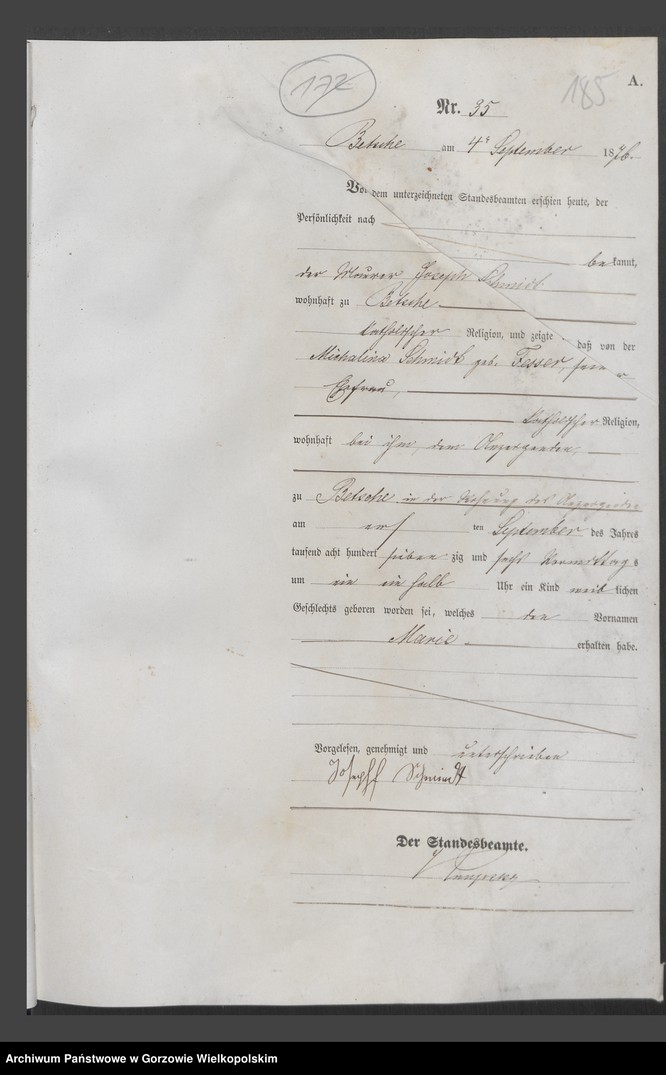 172
185
A.
Nr. 35
Betsche am 4t September 1876.
Vor dem unterzeichneten Standesbeamten erschien heute, der
Persönlichkeit nach
be kannt,
der Maurer Joseph Schmidt
wohnhaft zu Betsche
katholischer Religion, und zeigte daß von der
Michalina Schmidt geb. Fesser, seine r
Ehefrau,
katholischer Religion,
wohnhaft bei ihm, dem Anzeigenden,
zu Betsche in der Wohnung des Anzeigenden
am ten September des Jahres
tausend acht hundert sieben zig und sechs Vormittag s
um ein ein halb Uhr ein Kind weib lichen
Geschlechts geboren worden sei, welches den Vornamen
Marie erhalten habe.
Vorgelesen, genehmigt und unterschrieben
Joseph Schmidt
Der Standesbeamte.
Archiwum Państwowe w Gorzowie Wielkopolskim